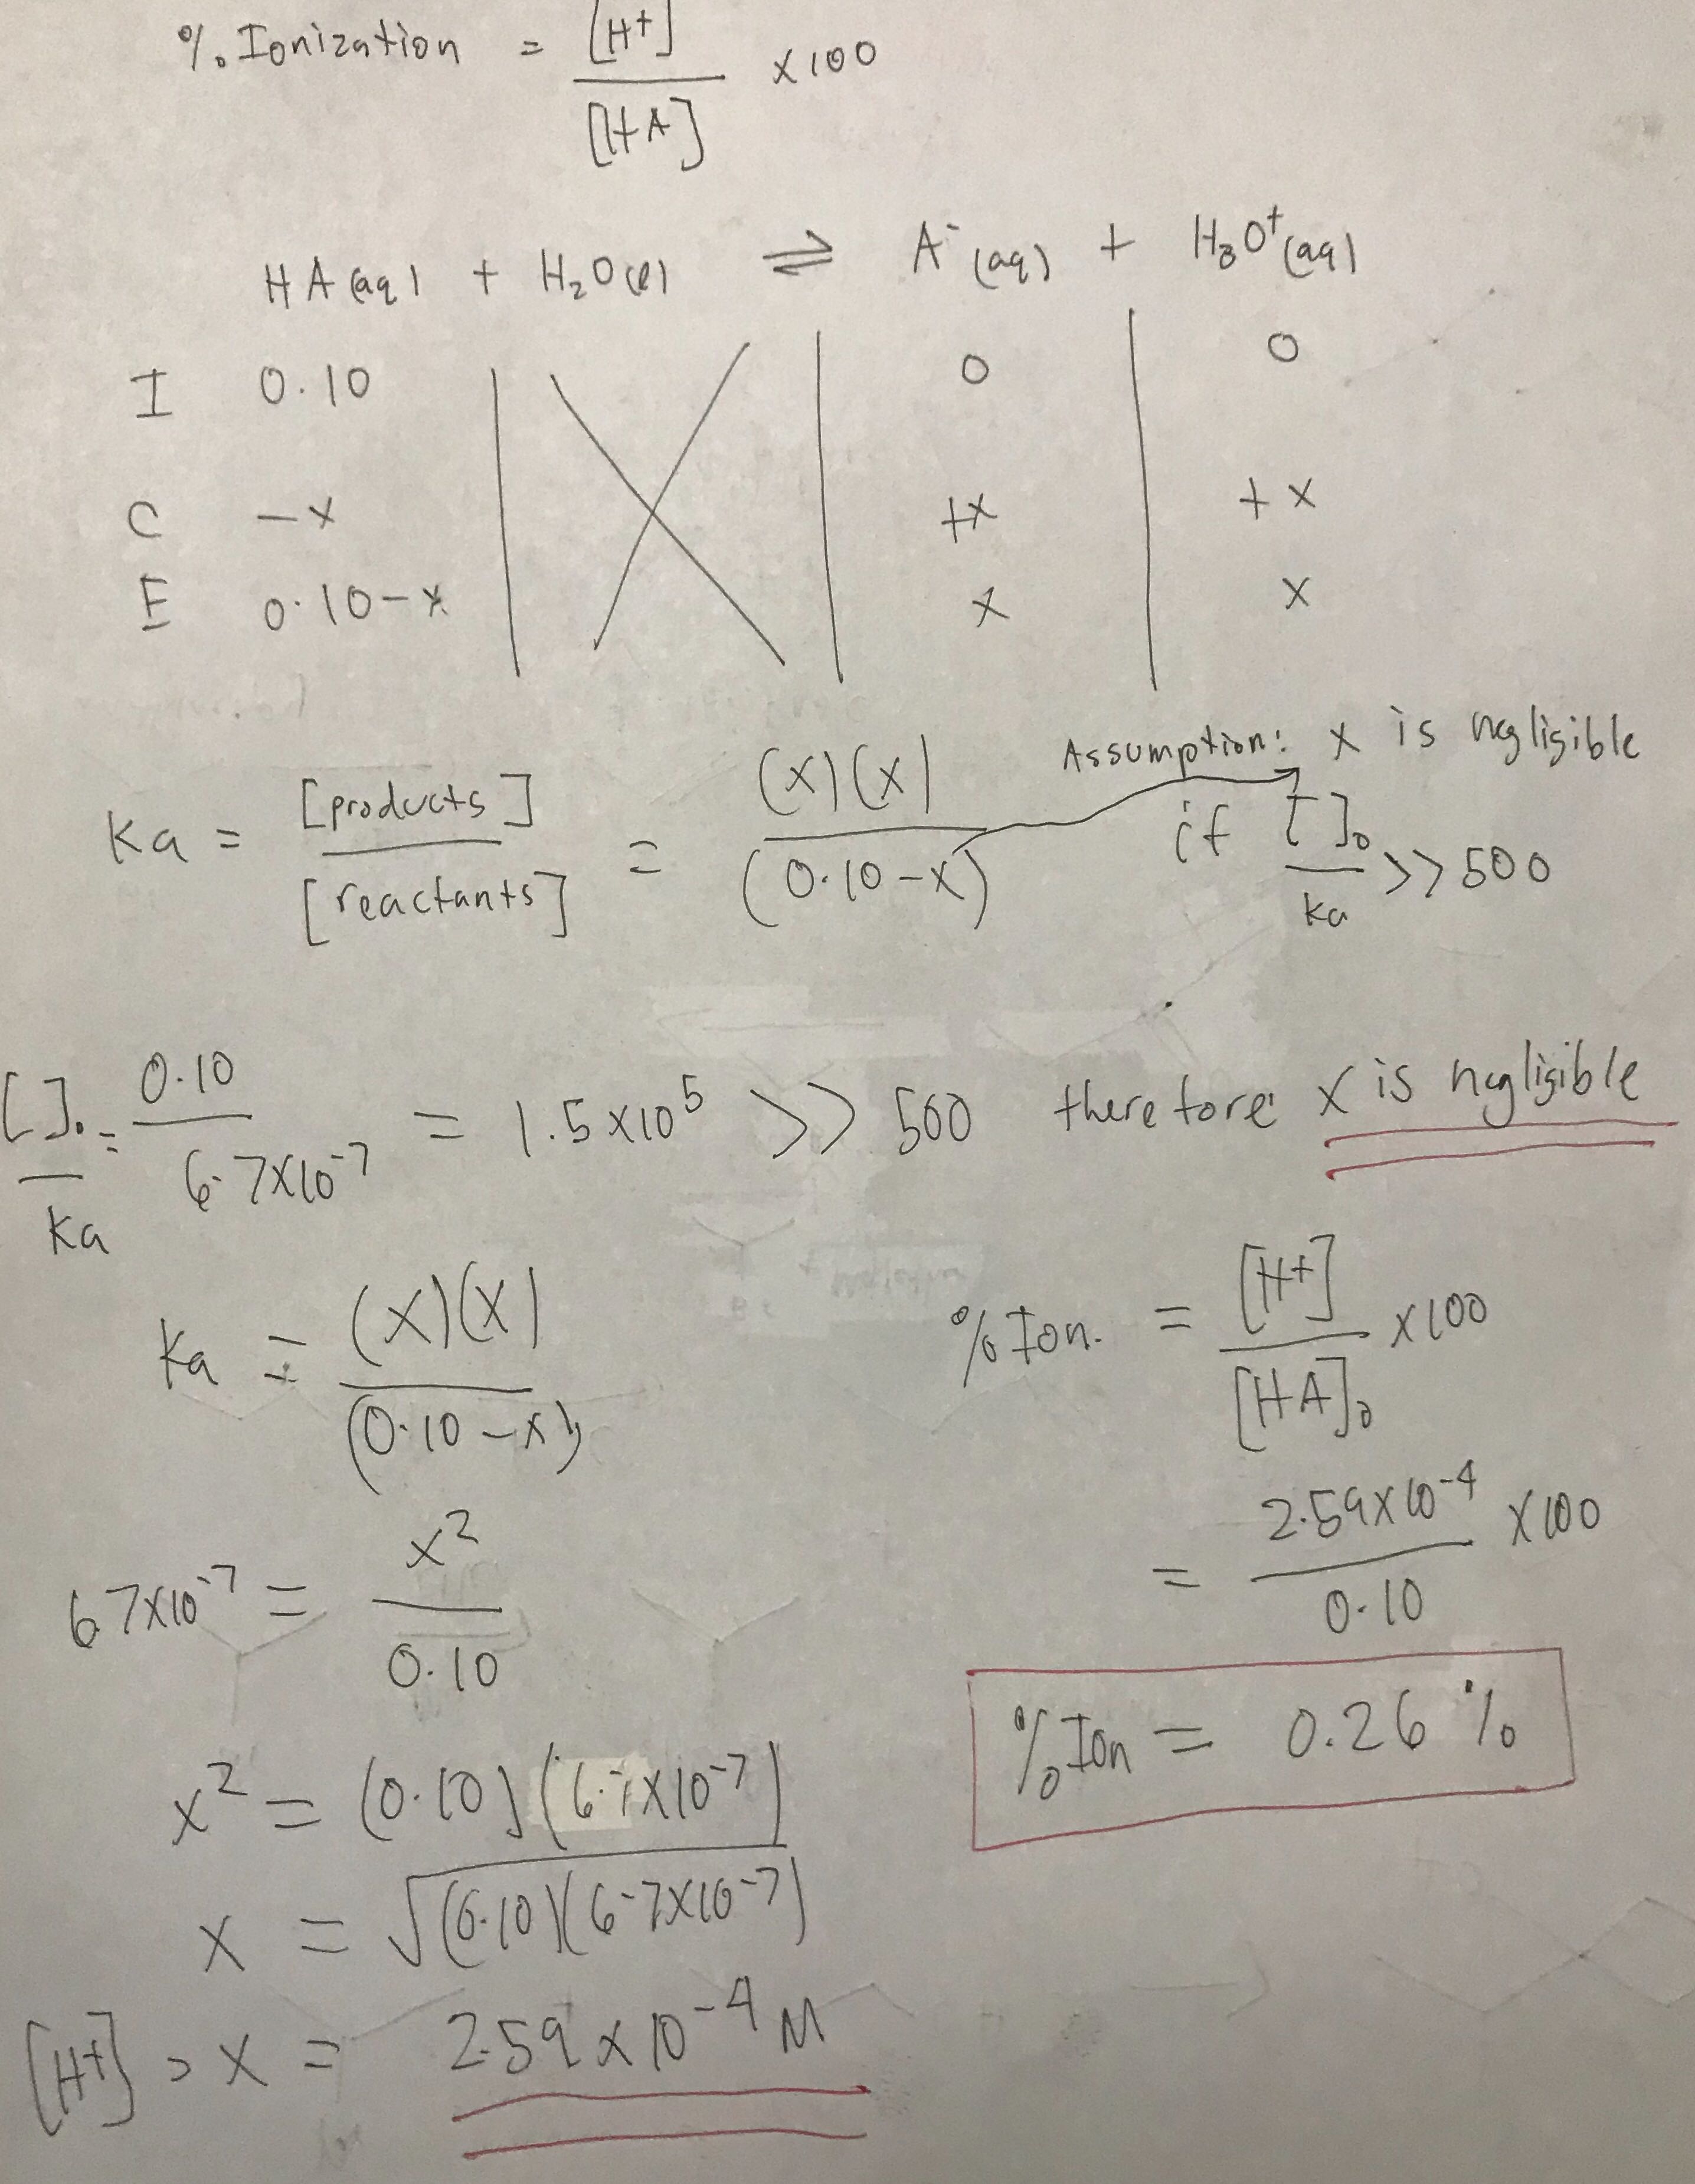 % Ionization = [H+] / [HA] x100
HA(aq) + H₂O(l) ⇌ A⁻(aq) + H₃O⁺(aq)
I 0.10 0 0
C -x +x +x
E 0.10-x x x
Ka = [products] / [reactants] = (x)(x) / (0.10-x)
Assumption: x is negligible
if [ ]₀ / ka >> 500
[ ]₀ / Ka = 0.10 / 6.7x10⁻⁷ = 1.5x10⁵ >> 500 therefore x is negligible
Ka = (x)(x) / (0.10-x)
6.7x10⁻⁷ = x² / 0.10
x² = (0.10)(6.7x10⁻⁷)
x = √(0.10)(6.7x10⁻⁷)
[H+] = x = 2.59x10⁻⁴ M
% Ion. = [H+] / [HA]₀ x100
= 2.59x10⁻⁴ / 0.10 x100
% Ion = 0.26 %